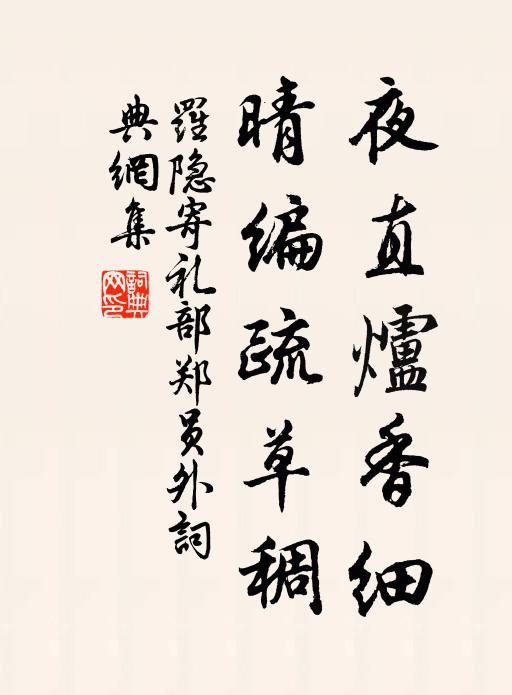 夜直爐香细
晴编疏草稠
羅隐寄礼部郑员外詞
典網集
詞典網印